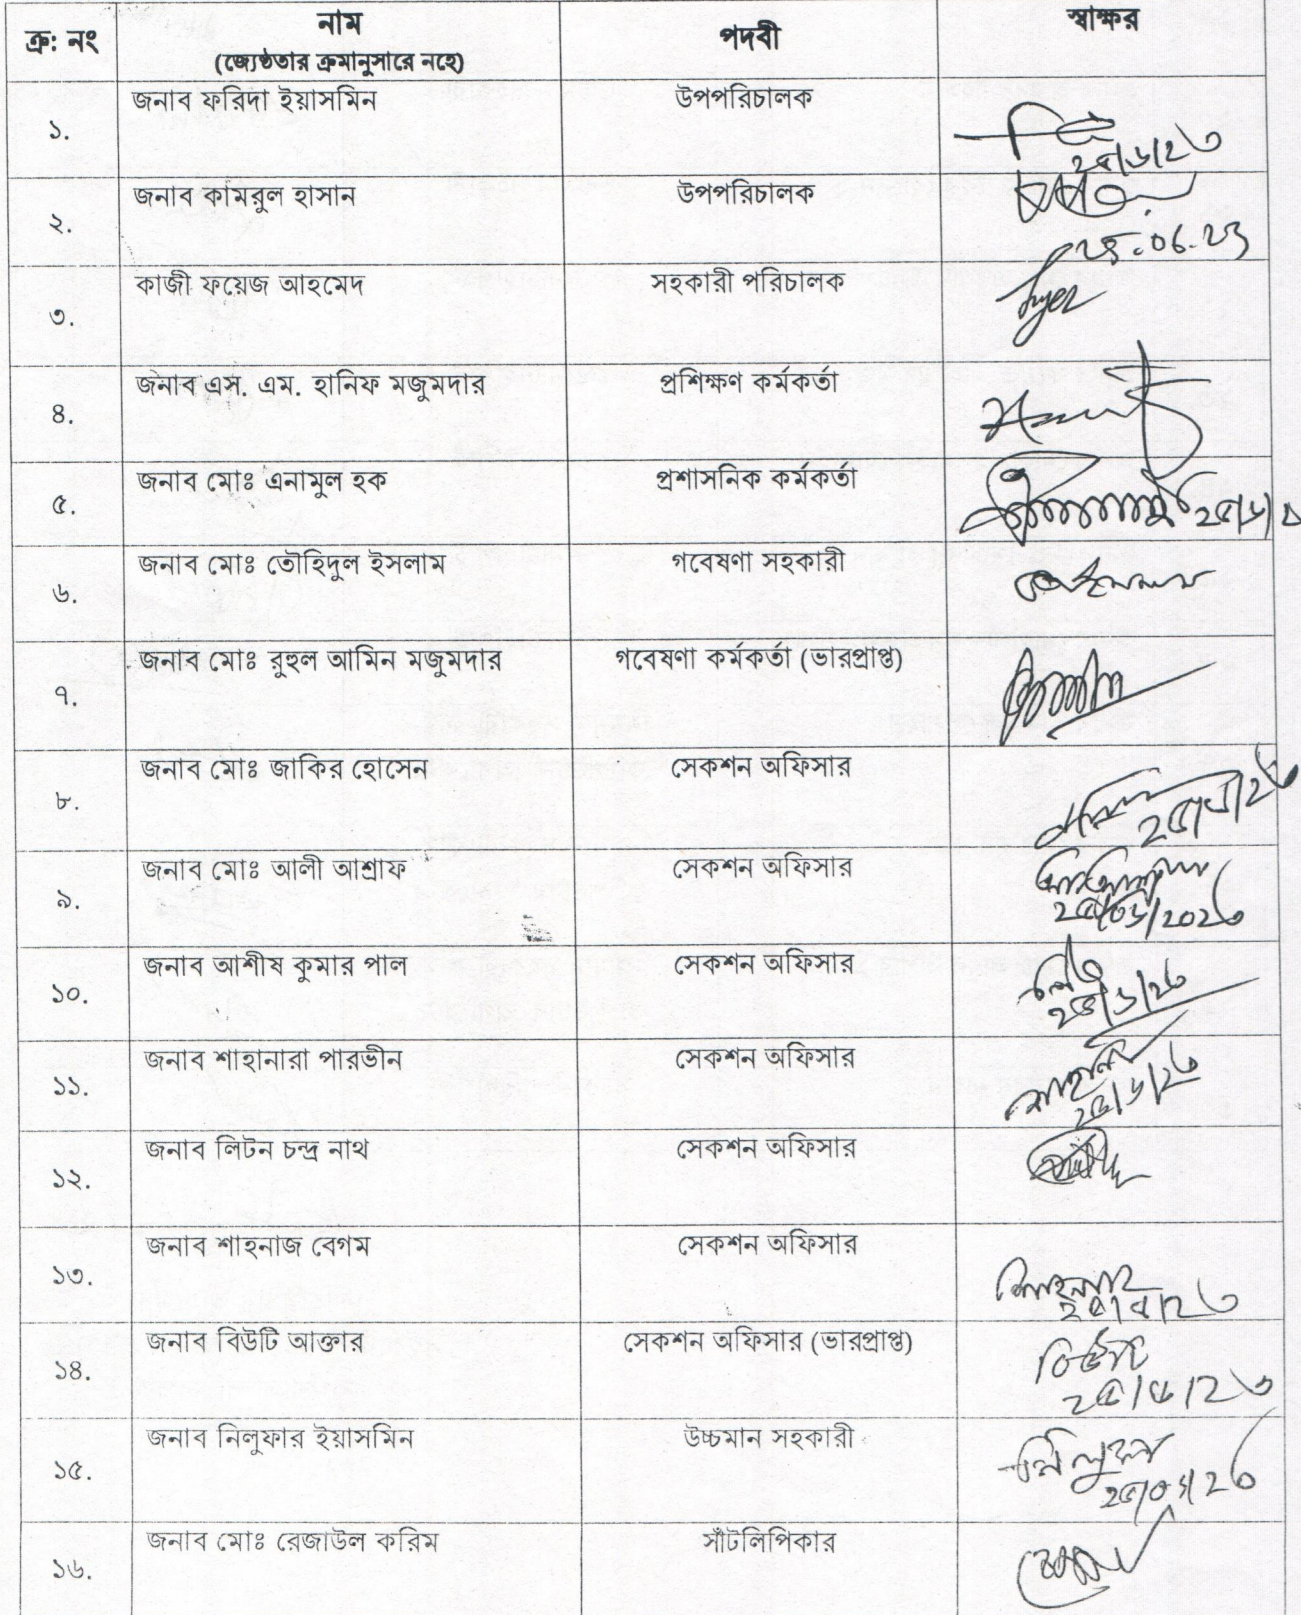 ক্র: নং	নাম	পদবী	স্বাক্ষর
(জ্যেষ্ঠতার ক্রমানুসারে নহে)
১.	জনাব ফরিদা ইয়াসমিন	উপপরিচালক
২৫/৬/২৩
২.	জনাব কামরুল হাসান	উপপরিচালক
২৫.০৬.২৩
৩.	কাজী ফয়েজ আহমেদ	সহকারী পরিচালক
৪.	জনাব এস. এম. হানিফ মজুমদার	প্রশিক্ষণ কর্মকর্তা
৫.	জনাব মোঃ এনামুল হক	প্রশাসনিক কর্মকর্তা
৬.	জনাব মোঃ তৌহিদুল ইসলাম	গবেষণা সহকারী
৭.	জনাব মোঃ রুহুল আমিন মজুমদার	গবেষণা কর্মকর্তা (ভারপ্রাপ্ত)
৮.	জনাব মোঃ জাকির হোসেন	সেকশন অফিসার
২৫/৬/২৩
৯.	জনাব মোঃ আলী আশ্রাফ	সেকশন অফিসার
২৫/০৬/২০২৩
১০.	জনাব আশীষ কুমার পাল	সেকশন অফিসার
২৫/৬/২৩
১১.	জনাব শাহানারা পারভীন	সেকশন অফিসার
২৫/৬/২৩
১২.	জনাব লিটন চন্দ্র নাথ	সেকশন অফিসার
১৩.	জনাব শাহনাজ বেগম	সেকশন অফিসার	শাহনাজ
১৪.	জনাব বিউটি আক্তার	সেকশন অফিসার (ভারপ্রাপ্ত)	বিউটি
২৫/৬/২৩
১৫.	জনাব নিলুফার ইয়াসমিন	উচ্চমান সহকারী
২৫/০৬/২৩
১৬.	জনাব মোঃ রেজাউল করিম	সাঁটলিপিকার